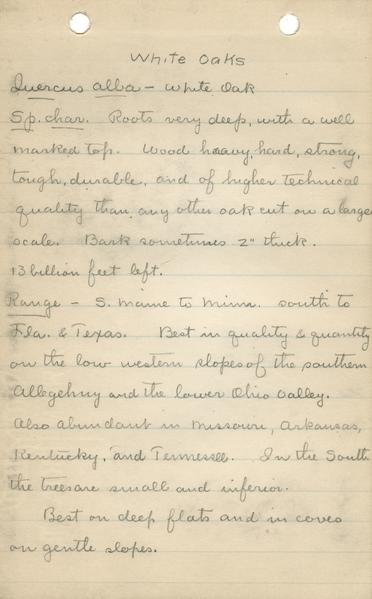 White Oaks
Quercus alba - White Oak
Sp. char. Roots very deep, with a well
marked top. Wood heavy, hard, strong,
tough, durable, and of higher technical
quality than any other oak cut on a large
scale. Bark sometimes 2" thick.
13 billion feet left.
Range - S. Maine to Minn. south to
Fla. & Texas. Best in quality & quantity
on the low western slopes of the southern
Allegehny and the lower Ohio Valley.
Also abundant in Missouri, Arkansas,
Kentucky, and Tennessee. In the South
the trees are small and inferior.
Best on deep flats and in coves
on gentle slopes.